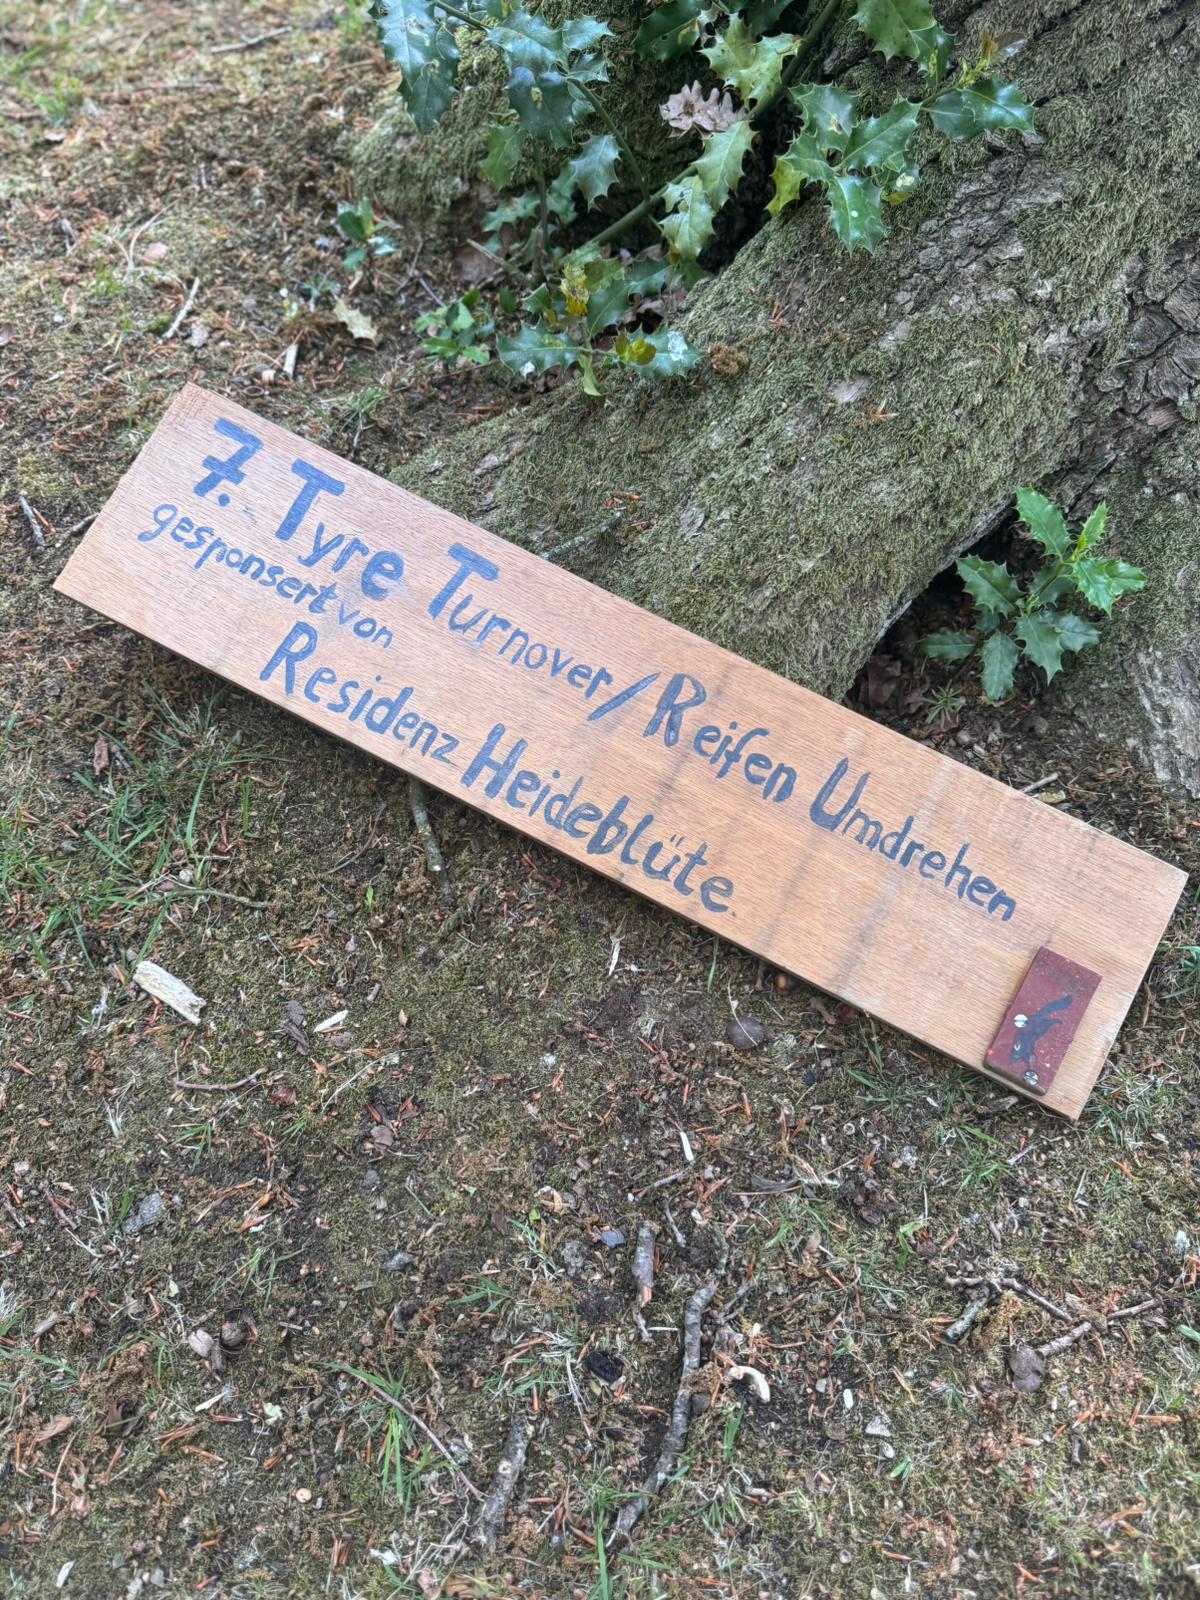 7. Tyre Turnover / Reifen Umdrehen
gesponsert von
Residenz Heideblüte